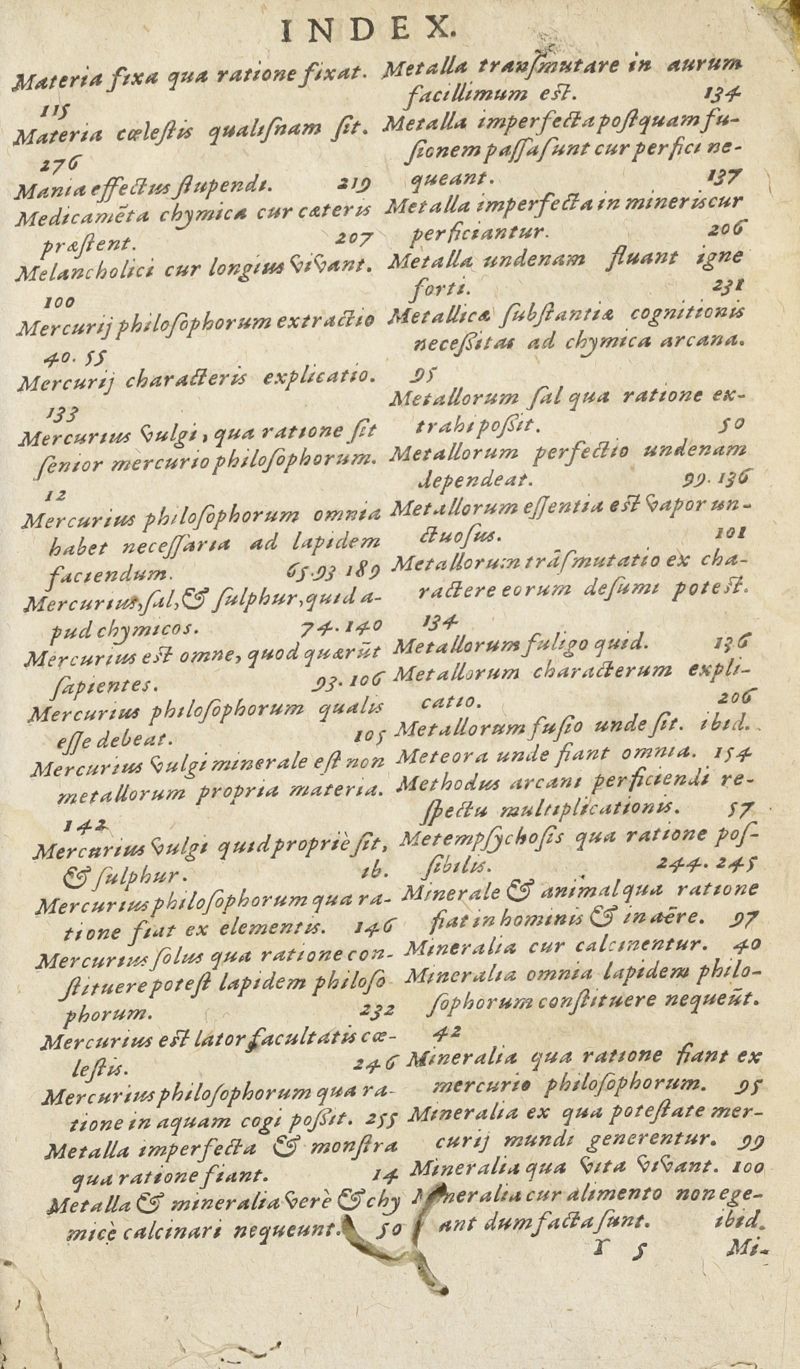 INDEX.
Materia fixa qua ratione fixat.
115
Materia cœleſtis qualiſnam ſit.
276
Mania effectus ſtupendi. 219
Medicamẽta chymica cur cæteris
præſtent. 207
Melancholici cur longius vivant.
100
Mercurij philoſophorum extractio
40. 55
Mercurij characteris explicatio.
133
Mercurius vulgi, qua ratione ſit
ſenior mercurio philoſophorum.
12
Mercurius philoſophorum omnia
habet neceſſaria ad lapidem
faciendum. 65.93 189
Mercurius, ſal, & ſulphur, quid a-
pud chymicos. 74. 140
Mercurius est omne, quod quærũt
ſapientes. 93. 106
Mercurius philoſophorum qualis
eſſe debeat. 105
Mercurius vulgi minerale eſt non
metallorum propria materia.
142
Mercurius vulgi quid propriè ſit,
& ſulphur. ib.
Mercurius philoſophorum qua ra-
tione fiat ex elementis. 146
Mercurius ſolus qua ratione con-
ſtituere poteſt lapidem philoſo
phorum. 232
Mercurius est lator facultatis cœ-
leſtis. 246
Mercurius philoſophorum qua ra-
tione in aquam cogi poßit. 255
Metalla imperfecta & monſtra
qua ratione fiant. 14
Metalla & mineralia verè & chy
micè calcinari nequeunt. 50
Metalla tranſmutare in aurum
facillimum est. 134
Metalla imperfecta poſtquam fu-
ſionem paſſa ſunt cur perfici ne-
queant. 137
Metalla imperfecta in mineris cur
perficiantur. 206
Metalla undenam fluant igne
forti. 231
Metallicæ ſubſtantiæ cognitionis
neceßitas ad chymica arcana.
95
Metallorum ſal qua ratione ex-
trahi poßit. 50
Metallorum perfectio undenam
dependeat. 99. 136
Metallorum eſſentia est vapor un-
ctuoſus. 101
Metallorum trãſmutatio ex cha-
ractere eorum deſumi potest.
134
Metallorum fuligo quid. 136
Metallorum characterum expli-
catio. 206
Metallorum fuſio unde ſit. ibid.
Meteora unde fiant omnia. 154
Methodus arcani perficiendi re-
ſpectu multiplicationis. 57
Metempſychoſis qua ratione poſ-
ſibilis. 244. 245
Minerale & animal qua ratione
fiat in hominis & in aëre. 97
Mineralia cur calcinentur. 40
Mineralia omnia lapidem philo-
ſophorum conſtituere nequeũt.
42
Mineralia qua ratione fiant ex
mercurio philoſophorum. 95
Mineralia ex qua poteſtate mer-
curij mundi generentur. 99
Mineralia qua vita vivant. 100
Mineralia cur alimento non ege-
ant dum facta ſunt. ibid.
Y 5 Mi-